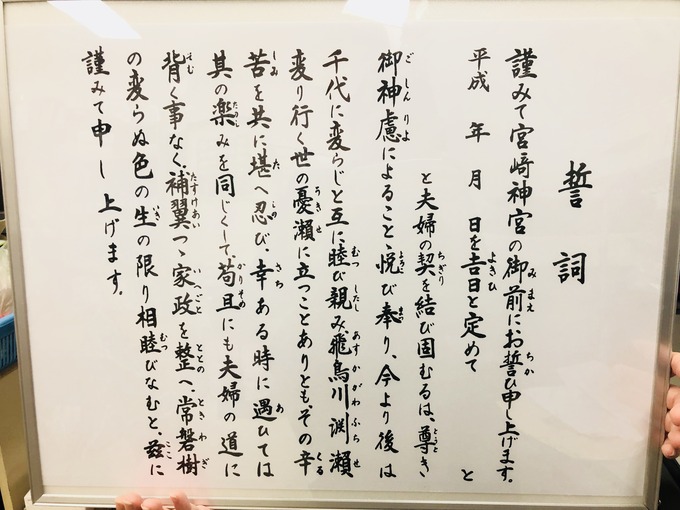 誓詞
謹みて宮崎神宮の御前にお誓ひ申し上げます。
平成　年　月　日を吉日と定めて　と
と夫婦の契を結び固むるは、尊き
御神慮によることゝ悦び奉り、今より後は
千代に変らじと互に睦び親み飛鳥川渕瀬
変り行く世の憂瀬に立つことありとも、その辛
苦を共に堪へ忍び、幸ある時に遇ひては
其の楽みを同じくして、苟且にも夫婦の道に
背く事なく、補翼つゝ家政を整へ、常磐樹
の変らぬ色の生の限り相睦びなむと、茲に
謹みて申し上げます。